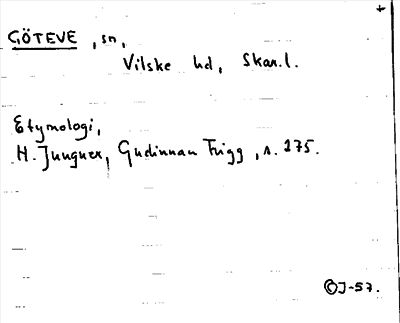 +
GÖTEVE, sn,
Vilske hd, Skar.l.
Etymologi,
H. Jungner, Gudinnan Frigg, s. 275.
©J-57.